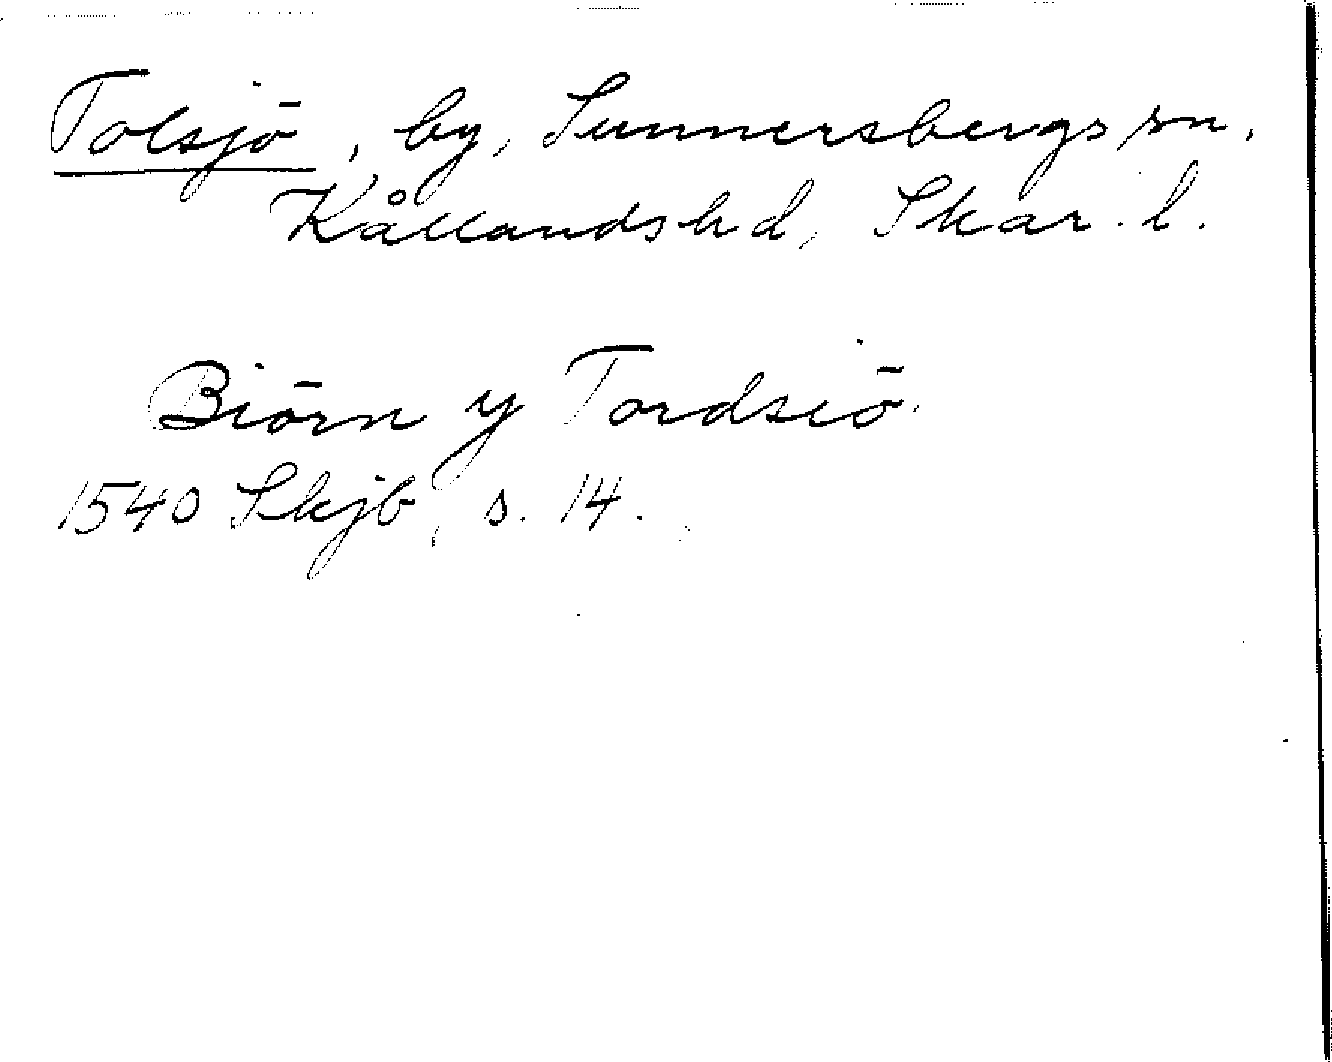 Tolsjö, by, Sunnersbergs sn.
Kållands hd, Skar. l.
Biörn y Tordsiö.
1540 Skjb, s. 14.